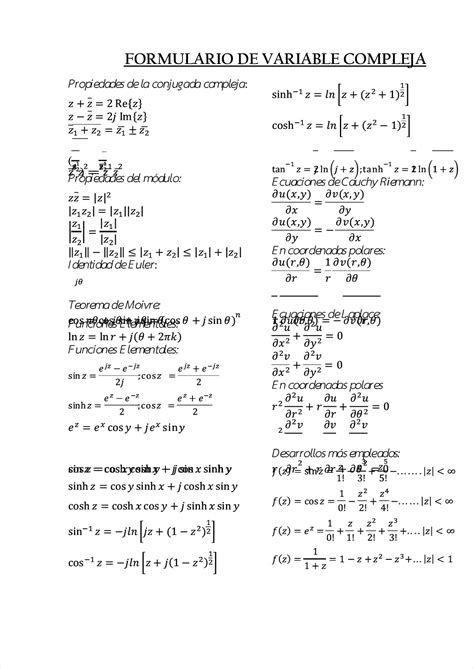 FORMULARIO DE VARIABLE COMPLEJA
Propiedades de la conjugada compleja:
z + z̅ = 2 Re{z}
z − z̅ = 2j Im{z}
z̅₁ + z₂ = z̅₁ ± z̅₂
Propiedades del módulo:
zz̅ = |z|²
|z₁z₂| = |z₁||z₂|
|z₁/z₂| = |z₁|/|z₂|
||z₁| − |z₂|| ≤ |z₁ + z₂| ≤ |z₁| + |z₂|
Identidad de Euler:
jθ
Teorema de Moivre:
cos θ + j sin θ)ⁿ
Funciones Elementales:
ln z = ln r + j(θ + 2πk)
Funciones Elementales:
sin z = (e^{jz} − e^{−jz})/2j ;cos z = (e^{jz} + e^{−jz})/2
sinh z = (e^z − e^{−z})/2 ;cos z = (e^z + e^{−z})/2
e^z = e^x cos y + je^x sin y
sinh z = cos y sinh x + j cosh x sin y
cosh z = cosh x cos y + j sinh x sin y
sin⁻¹ z = −jln [jz + (1 − z²)^{1/2}]
cos⁻¹ z = −jln [z + j(1 − z²)^{1/2}]
sinh⁻¹ z = ln [z + (z² + 1)^{1/2}]
cosh⁻¹ z = ln [z + (z² − 1)^{1/2}]
tan⁻¹ z = ln (j + z);tanh⁻¹ z = ln (1 + z)
Ecuaciones de Cauchy Riemann:
∂u(x,y)/∂x = ∂v(x,y)/∂y
∂u(x,y)/∂y = − ∂v(x,y)/∂x
En coordenadas polares:
∂u(r,θ)/∂r = 1/r ∂v(r,θ)/∂θ
Ecuaciones de Laplace:
∂²u/∂x² + ∂²u/∂y² = 0
∂²v/∂x² + ∂²v/∂y² = 0
En coordenadas polares
r² ∂²u/∂r² + r ∂u/∂r + ∂²u/∂θ² = 0
Desarrollos más empleados:
f(z) = cos z = 1/0! − z²/2! + z⁴/4! − ...... |z| < ∞
f(z) = e^z = 1/0! + z/1! + z²/2! + z³/3! +.... |z| < ∞
f(z) = 1/(1 + z) = 1 − z + z² − z³+... |z| < 1